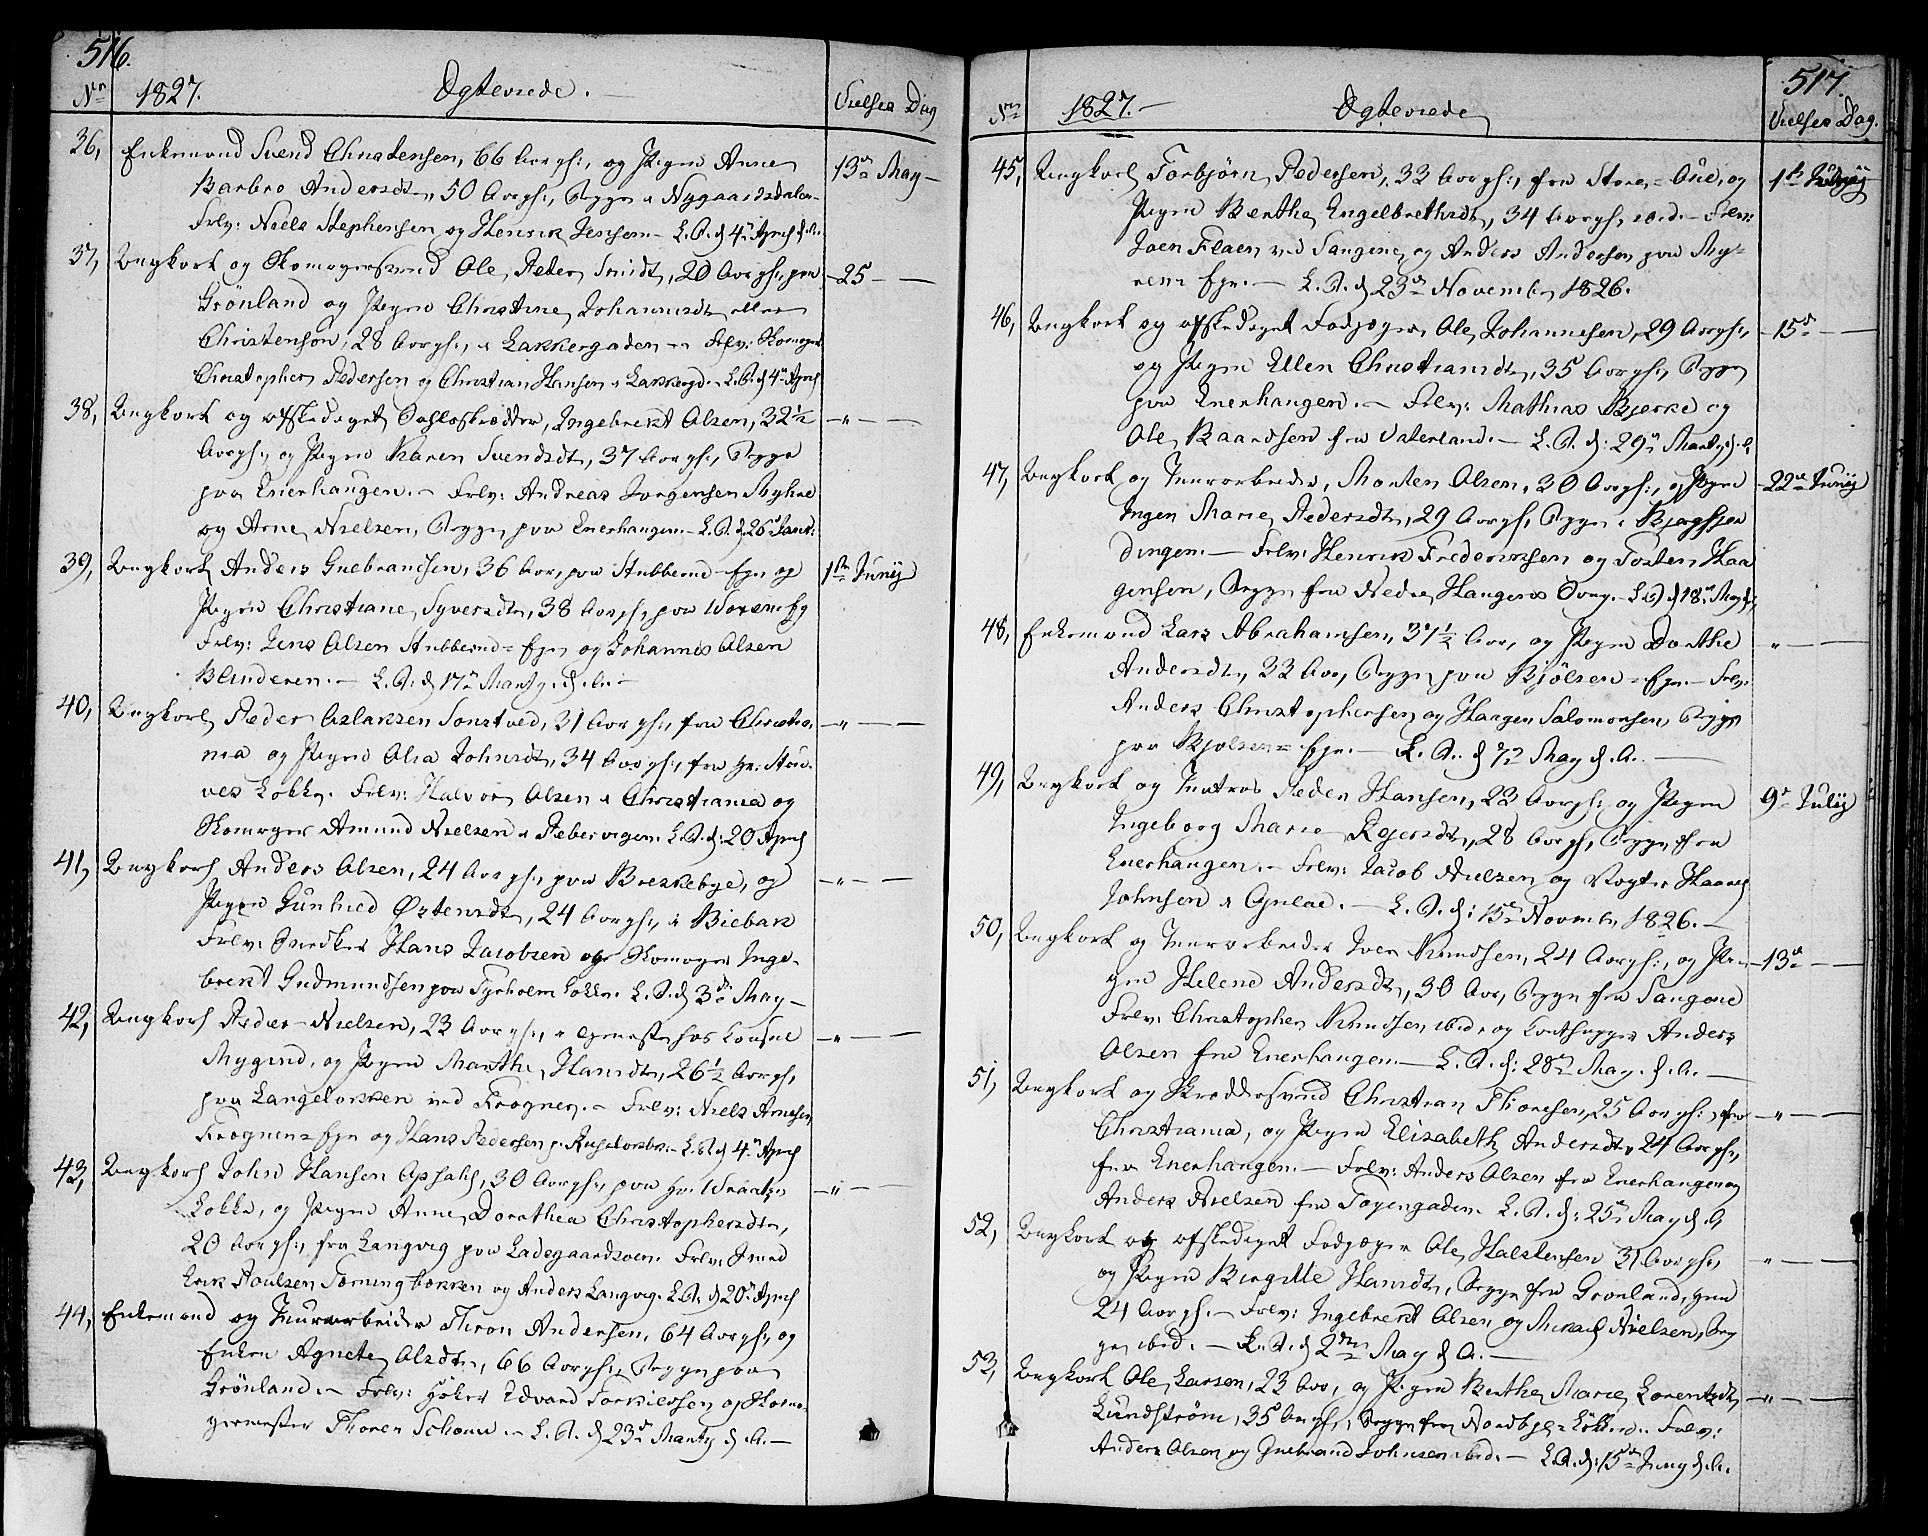 516.
Nr 1827. Egtevıede. Vielses Dag
36, Enkemand Svend Christensen, 66 Aar gl:, og Pigen Anne 13de May
Barbro Andersdt, 50 Aar gl:, Begge i Nygaardsdalen
Forlv: Niels Stephensen og Henrik Jensen. L. S. d 4de April d. A.
37, Ungkarl og Skomagersvend Ole Peter Smidt, 20 Aar gl:, paa 25
Grönland og Pigen Christine Johannisdt eller
Christenson, 28 Aar gl:, i Lakkergaden Forlv: Skomager
Christopher Pedersen og Christian Hansen i Lakkergd. L. S. d 4de April
38, Ungkarl og afskediget Ingebrekt Olsen, 32 1/2 "
Aar gl:, og Pigen Karen Svendsdt, 37 Aar gl:, Begge
paa Enerhaugen. Forlv: Andreas Jorgensen Myhre
og Arne Nielsen, Begge paa Enerhaugen. L. S. d. 26de
39, Ungkarl Anders Gulbrandsen, 36 Aar, paa Stubberud Ejen og 1ste Junij
Pigen Christiane Syversdt, 38 Aar gl:, paa
Forlv: Jens Olsen Stubberud Ejen og Johannes Olsen
Blinderen. L. S. d 17de Marty d. A.
40, Ungkarl Peder Aslaksen Sonstved, 31 Aar gl:, fra Christia- "
nia og Pigen Olia Johnsdt, 34 Aar gl:, fra Hr:
Løkke. Forlv: Halvor Olsen i Christiania og
Skomager Amund Nielsen i Pebervigen L. S. d: 20 April
41, Ungkarl Anders Olsen, 24 Aar gl:, paa Breskebye, og "
Pigen Gunhild Østensdt, 24 Aar gl:, i Biebak
Forlv: Snedker Hans Jacobsen og Skomager Inge-
brekt Gudmundsen paa Tyrholm Løkke. L. S. d 3de May
42, Ungkarl Peder Nielsen, 23 Aar gl:, i Tjeneste hos Consul "
Mygind, og Pigen Marthe Hansdt, 26 1/2 Aar gl,
paa Langelokken ved Frogner. Forlv: Niels Arnesen
Frogner Ejen og Hans Pedersen L. S. d 4de April
43, Ungkarl John Hansen Opsahl, 30 Aar gl:, paa Hr. "
Løkke, og Pigen Anne Dorothea Christophersdt,
20 Aar gl:, fra Langvig paa Ladegaardsoen. Forlv:
Erik Poulsen og Anders Langvig. L. S. d 20de April
44, Enkemand og Thron Andersen, 64 Aar gl:, og
Enken Agnete Olsdt, 66 Aar gl:, Begge paa
Grönland. Forlv: Höker Edvard Torkildsen og Skoma-
germester Thoren Schou. L. S. d 23de Marty d. A.
517.
Nr 1827. Egtevıede Vielses Dag.
45, Ungkarl Torbjörn Pedersen, 33 Aar gl:, fra Store Aae, og 1ste
Pigen Berthe Engelbrethsdt, 34 Aar gl, ibid. Forlv:
Joen Flaen ved Sangene og Anders Andersen paa My-
rene Ejen. L. S. d 23de Novembr 1826.
46, Ungkarl og afskediget Fodjæger Ole Johannesen, 29 Aar gl:, 15de
og Pigen Ellen Christiansdt, 35 Aar gl:, Begge
paa Enerhaugen. Forlv: Mathias Bjerke og
Ole Baardsen fra Vaterland. L. S. d: 29de Marty d. A
47, Ungkarl og Morten Olsen, 30 Aar gl:, og Pigen 22de Junij
Ingen Marie Pedersdt, 29 Aar gl, Begge i Bjergsjor
dingen. Forlv: Henrik Frederiksen og Tosten Haa
gensen, Begge fra Nedre Haugens Oug. L. S. d 18de May
48, Enkemand Lars Abrahamsen, 37 1/2 Aar, og Pigen Dorthe "
Andersdt, 33 Aar, Begge paa Bjølsen Ejen. Forlv:
Anders Christophersen og Haagen Salomonsen, Begge
paa Bjølsen Ejen. L. S. d 7de May d. A.
49, Ungkarl og Peder Hansen, 23 Aar gl:, og Pigen 9de Julij
Ingeborg Marie Rejersdt, 28 Aar gl, Begge fra
Enerhaugen. Forlv: Jacob Nielsen og Vogter
Johnsen i L. S. d: 15de Novembr 1826.
50, Ungkarl og Iver Knudsen, 24 Aar gl:, og Pi- 13de
gen Helene Andersdt, 30 Aar, Begge fra Sangene
Forlv: Christopher Knudsen ibid. og Anders
Olsen fra Enerhaugen. L. S. d: 28de May d. A.
51, Ungkarl og Skreddersvend Christian Thoresen, 25 Aar gl:, fra "
Christiania, og Pigen Elisabeth Andersdt, 24 Aar gl:,
fra Enerhaugen. Forlv: Anders Olsen fra Enerhaugen og
Anders Nielsen fra Tøyengaden. L. S. d: 25de May d. A
52, Ungkarl og afskediget Fodjæger Ole Halstensen 31 Aar gl:, "
og Pigen Birgitte Hansdt, Begge fra Grønland, hun
24 Aar gl. Forlv: Ingebrekt Olsen og Mikael Nielsen, Beg
ge ibid. L. S. d 2den May d. A.
53, Ungkarl Ole Larsen, 23 Aar, og Pigen Berthe Marie Lorentzdt "
Lundström, 35 Aar gl, Begge fra Nordbye Løkken. Forlv:
Anders Olsen og Gulbrand Johnsen ibid. L. S. d: 15de Juny d. A.